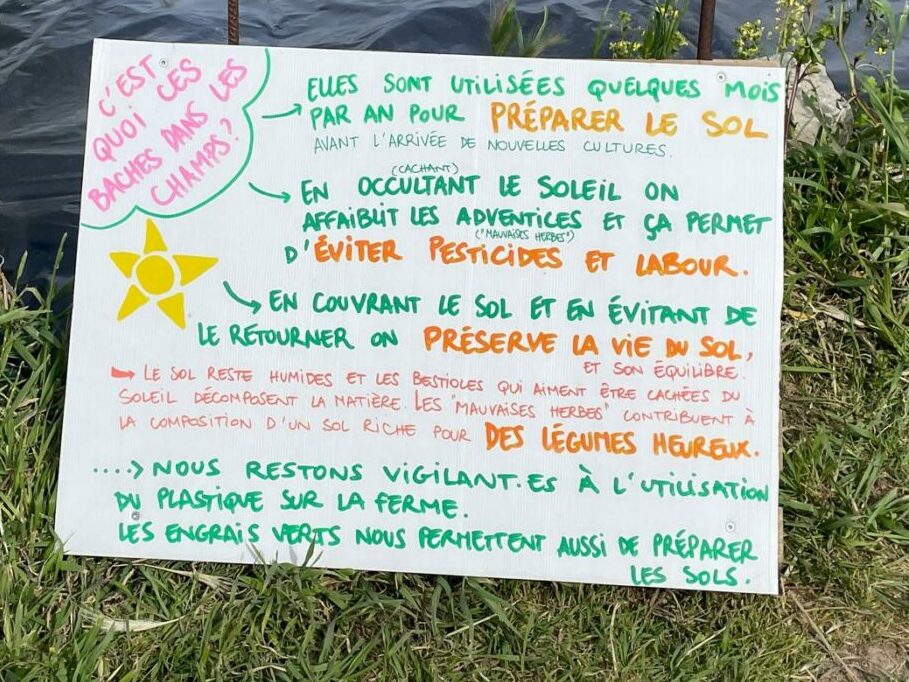 C'EST
QUOI CES
BACHES DANS LES
CHAMPS?
ELLES SONT UTILISÉES QUELQUES MOIS
PAR AN POUR PRÉPARER LE SOL
AVANT L'ARRIVÉE DE NOUVELLES CULTURES.
(CACHANT)
EN OCCULTANT LE SOLEIL ON
AFFAIBLIT LES ADVENTICES ET ÇA PERMET
("MAUVAISES HERBES")
D'ÉVITER PESTICIDES ET LABOUR.
EN COUVRANT LE SOL ET EN ÉVITANT DE
LE RETOURNER ON PRÉSERVE LA VIE DU SOL,
ET SON ÉQUILIBRE.
LE SOL RESTE HUMIDES ET LES BESTIOLES QUI AIMENT ÊTRE CACHÉES DU
SOLEIL DÉCOMPOSENT LA MATIÈRE. LES "MAUVAISES HERBES" CONTRIBUENT À
LA COMPOSITION D'UN SOL RICHE POUR DES LÉGUMES HEUREUX.
....> NOUS RESTONS VIGILANT.ES À L'UTILISATION
DU PLASTIQUE SUR LA FERME.
LES ENGRAIS VERTS NOUS PERMETTENT AUSSI DE PRÉPARER
LES SOLS.